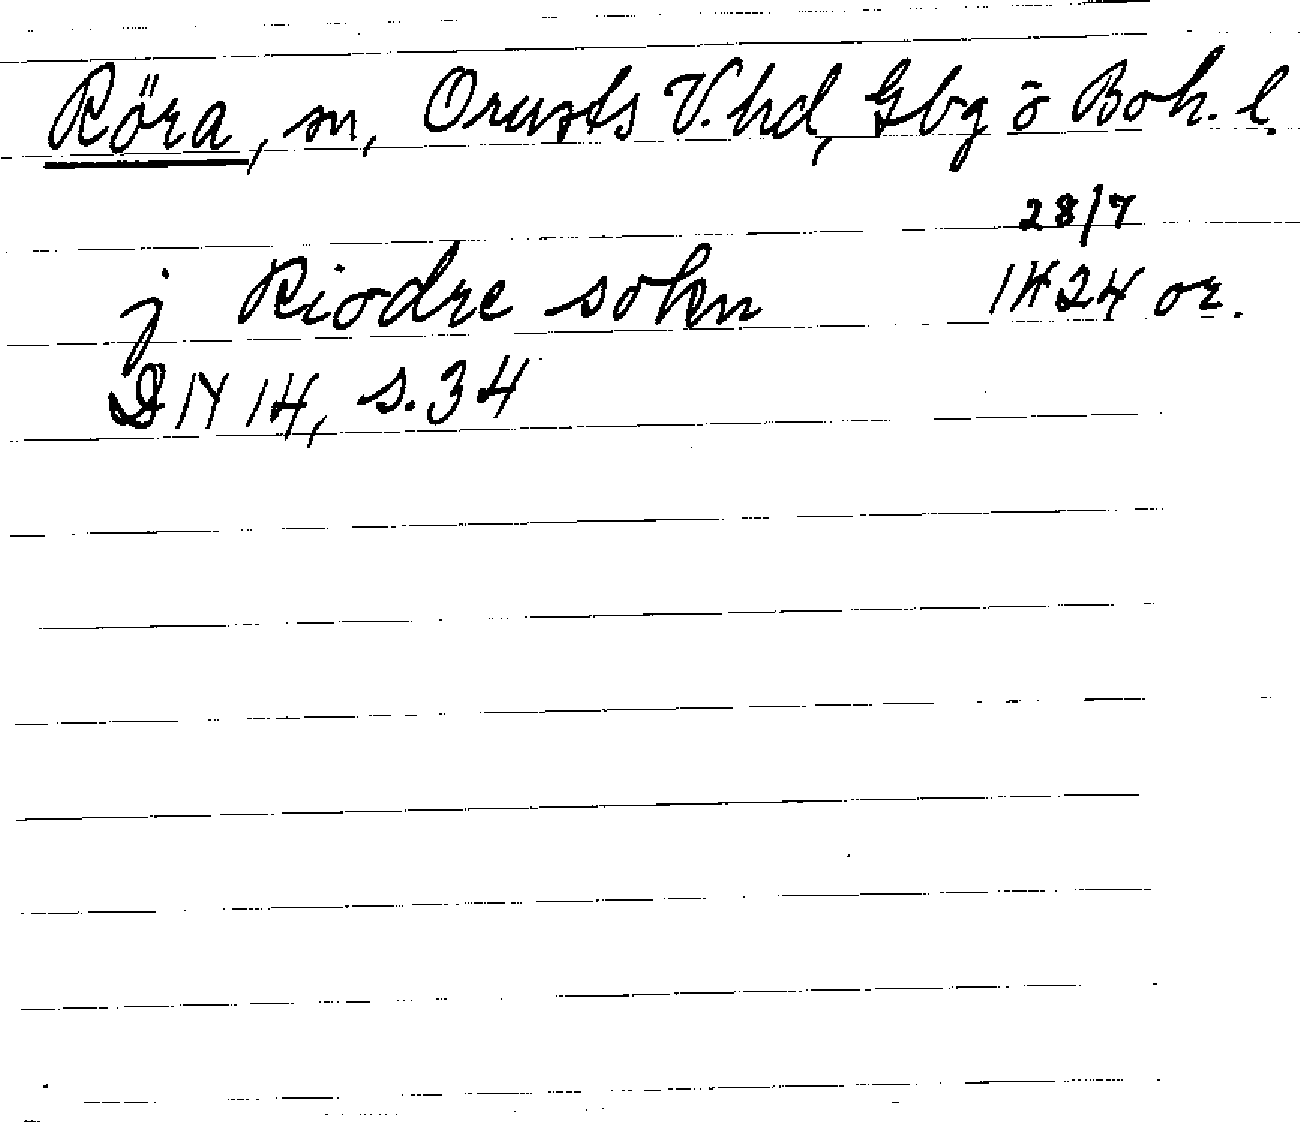 Röra, sn, Orusts V. hd, Gbg o Boh. l.
28/7
j Riodre sokn 1424 or.
DN 14, s. 34